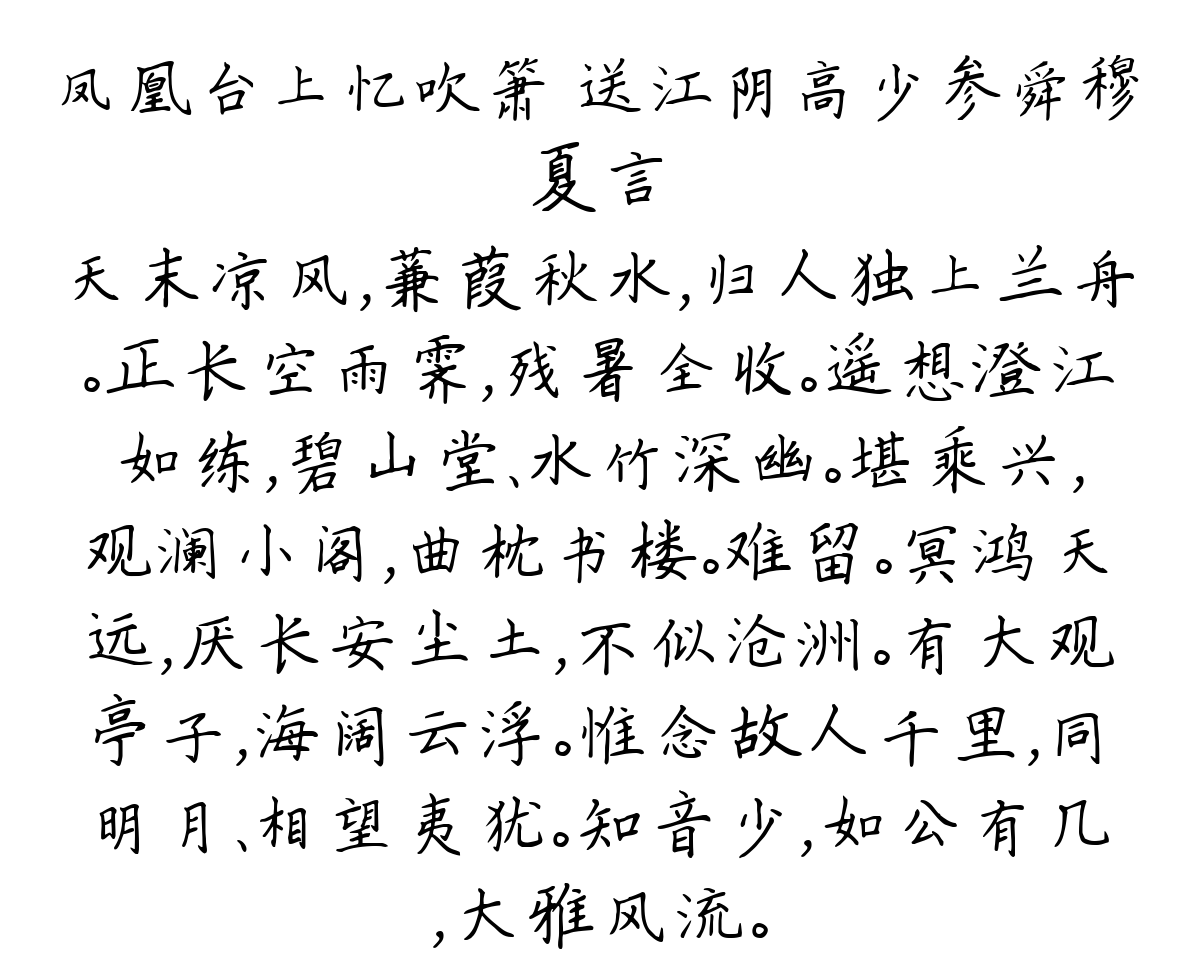 凤凰台上忆吹箫 送江阴高少参舜穆
夏言
天末凉风,蒹葭秋水,归人独上兰舟
。正长空雨霁,残暑全收。遥想澄江
如练,碧山堂、水竹深幽。堪乘兴,
观澜小阁,曲枕书楼。难留。冥鸿天
远,厌长安尘土,不似沧洲。有大观
亭子,海阔云浮。惟念故人千里,同
明月、相望夷犹。知音少,如公有几
,大雅风流。